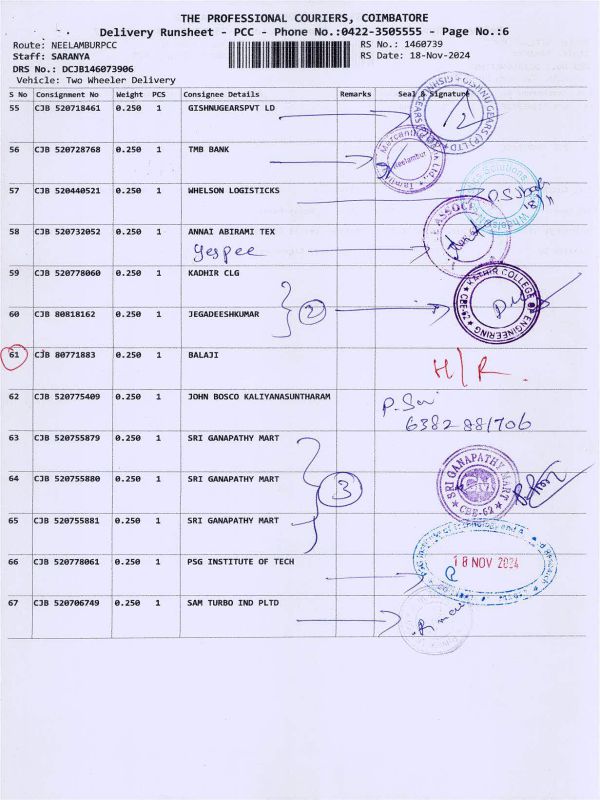 THE PROFESSIONAL COURIERS, COIMBATORE
Delivery Runsheet - PCC - Phone No.:0422-3505555 - Page No.:6
Route: NEELAMBURPCC RS No.: 1460739
Staff: SARANYA RS Date: 18-Nov-2024
DRS No.: DCJB146073906
Vehicle: Two Wheeler Delivery
S No Consignment No Weight PCS Consignee Details Remarks Seal & Signature
55 CJB 520718461 0.250 1 GISHNUGEARSPVT LD
GISHNU GEARS (P) LTD
56 CJB 520728768 0.250 1 TMB BANK
Neelambur
57 CJB 520440521 0.250 1 WHELSON LOGISTICKS
58 CJB 520732052 0.250 1 ANNAI ABIRAMI TEX
Yespee
59 CJB 520778060 0.250 1 KADHIR CLG
KATHIR COLLEGE OF ENGINEERING
60 CJB 80818162 0.250 1 JEGADEESHKUMAR
2
61 CJB 80771883 0.250 1 BALAJI
H/R.
62 CJB 520775409 0.250 1 JOHN BOSCO KALIYANASUNTHARAM
6382 881706
63 CJB 520755879 0.250 1 SRI GANAPATHY MART
64 CJB 520755880 0.250 1 SRI GANAPATHY MART
3
SRI GANAPATHY MART
CBE-62
65 CJB 520755881 0.250 1 SRI GANAPATHY MART
66 CJB 520778061 0.250 1 PSG INSTITUTE OF TECH
18 NOV 2024
67 CJB 520706749 0.250 1 SAM TURBO IND PLTD